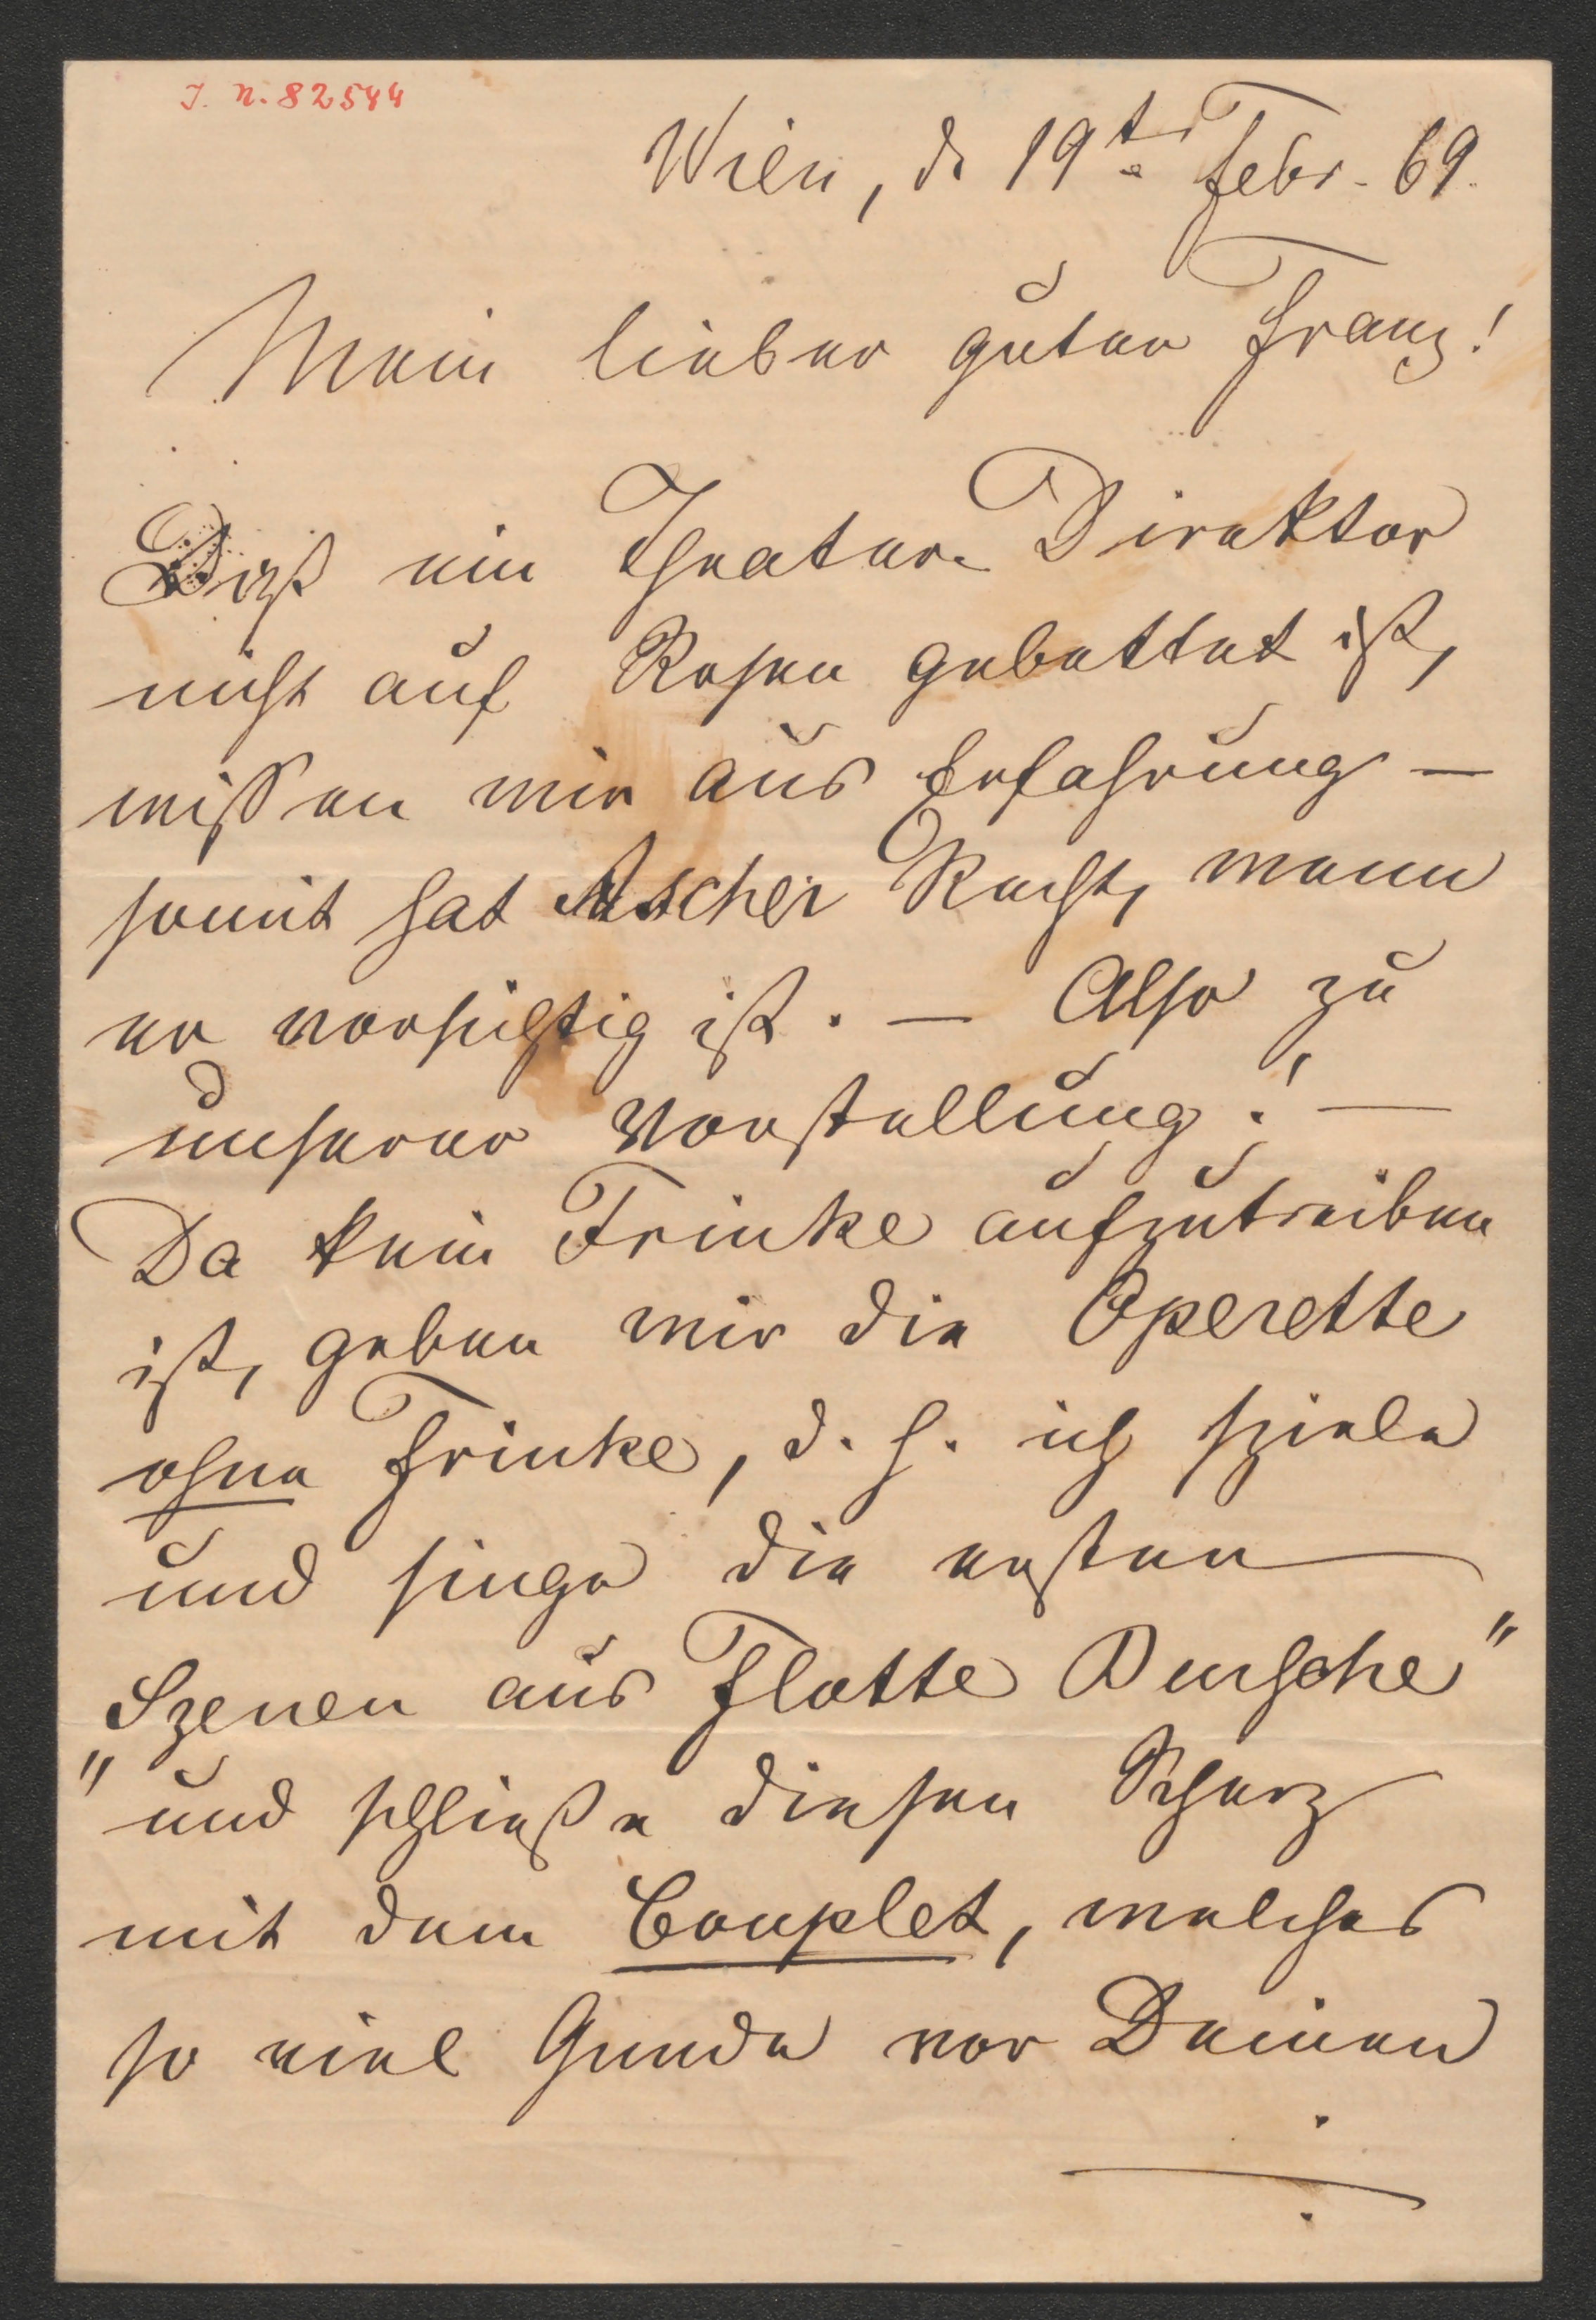 J. N. 82544
Wien, d. 19te Febr. 69.
Mein lieber guter Franz!
Daß ein Theater-Direktor
nicht auf Rosen gebettet ist,
wissen wir aus Erfahrung —
somit hat Ascher Recht, wenn
er vorsichtig ist. — Also zu
unserer Vorstellung! —
Da kein Frinke aufzutreiben
ist, geben wir die Operette
ohne Frinke, d. h. ich spiele
und singe die ersten
Szenen aus Flotte Bursche"
"und schließe diesen Scherz
mit dem Couplet, welches
so viel Gnade vor Deinen